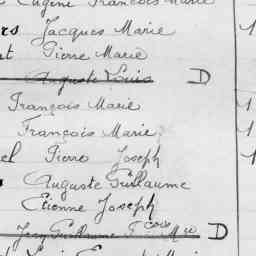 Eugène François Marie
rs Jacques Marie 1
t Pierre Marie
Auguste Louis D
François Marie 1
François Marie 1
el Pierre Joseph 1
Auguste Guillaume
Etienne Joseph
Guillaume Fçois Mie D